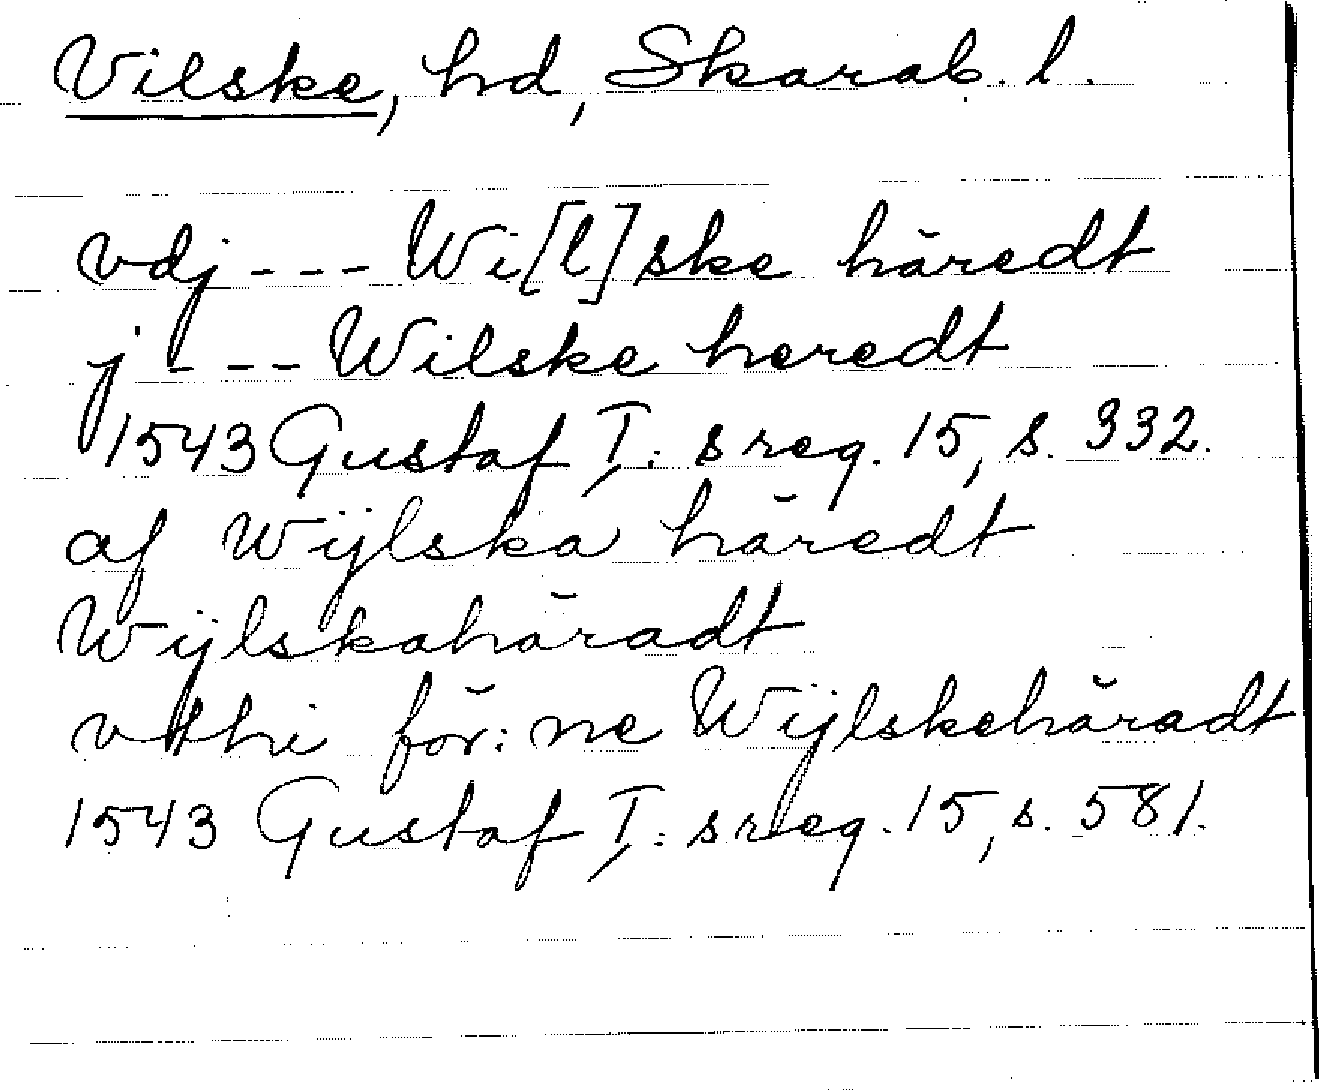 Vilske, hd, Skarab. l.
vdj --- Wi[l]ske häredt
j --- Wilske heredt
1543 Gustaf I: s reg. 15, s. 332.
af Wijlska häredt
Wijlskahäradt
vthi för:ne Wijlskehäradt
1543 Gustaf I: s reg. 15, s. 581.